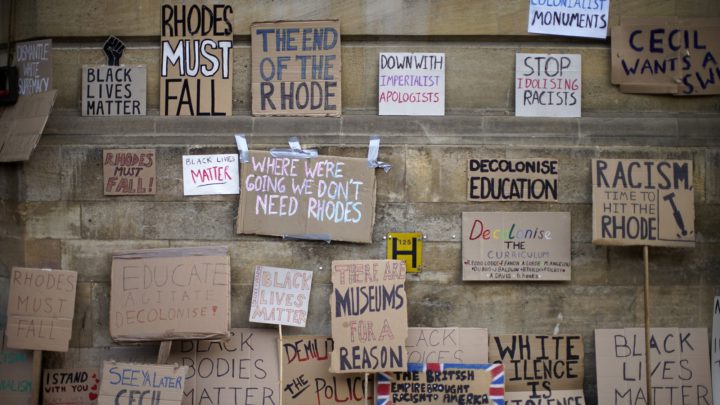 COLONIALIST
MONUMENTS
RHODES
MUST
FALL
THE END
OF THE
RHODE
DISMANTLE
WHITE
SUPREMACY
BLACK
LIVES
MATTER
DOWN WITH
IMPERIALIST
APOLOGISTS
STOP
IDOLISING
RACISTS
CECIL
WANTS A
RHODES
MUST
FALL!
BLACK LIVES
MATTER
WHERE WE'RE
GOING WE DON'T
NEED RHODES
DECOLONISE
EDUCATION
RACISM,
TIME TO
HIT THE
RHODE
125
H
DECOLONISE
THE
CURRICULUM
RHODES
MUST
FALL
EDUCATE
ADVOCATE
DECOLONISE!
BLACK
LIVES
MATTER
THERE ARE
MUSEUMS
FOR A
REASON
I STAND
WITH YOU
SEE YA LATER
CECIL
BLACK
BODIES
MATTER
THE
POLICE
BLACK
VOICES
THE BRITISH
EMPIRE BROUGHT
RACISM TO AMERICA
WHITE
SILENCE
IS
BLACK
LIVES
MATTER